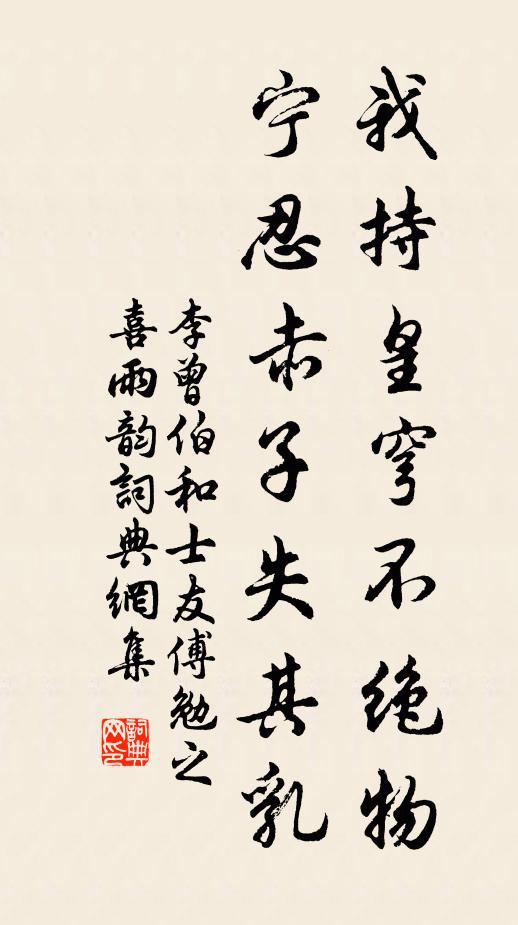 我持皇穹不绝物
宁忍赤子失其乳
李曾伯和士友傅勉之
喜雨韵詞典網集
詞典网印